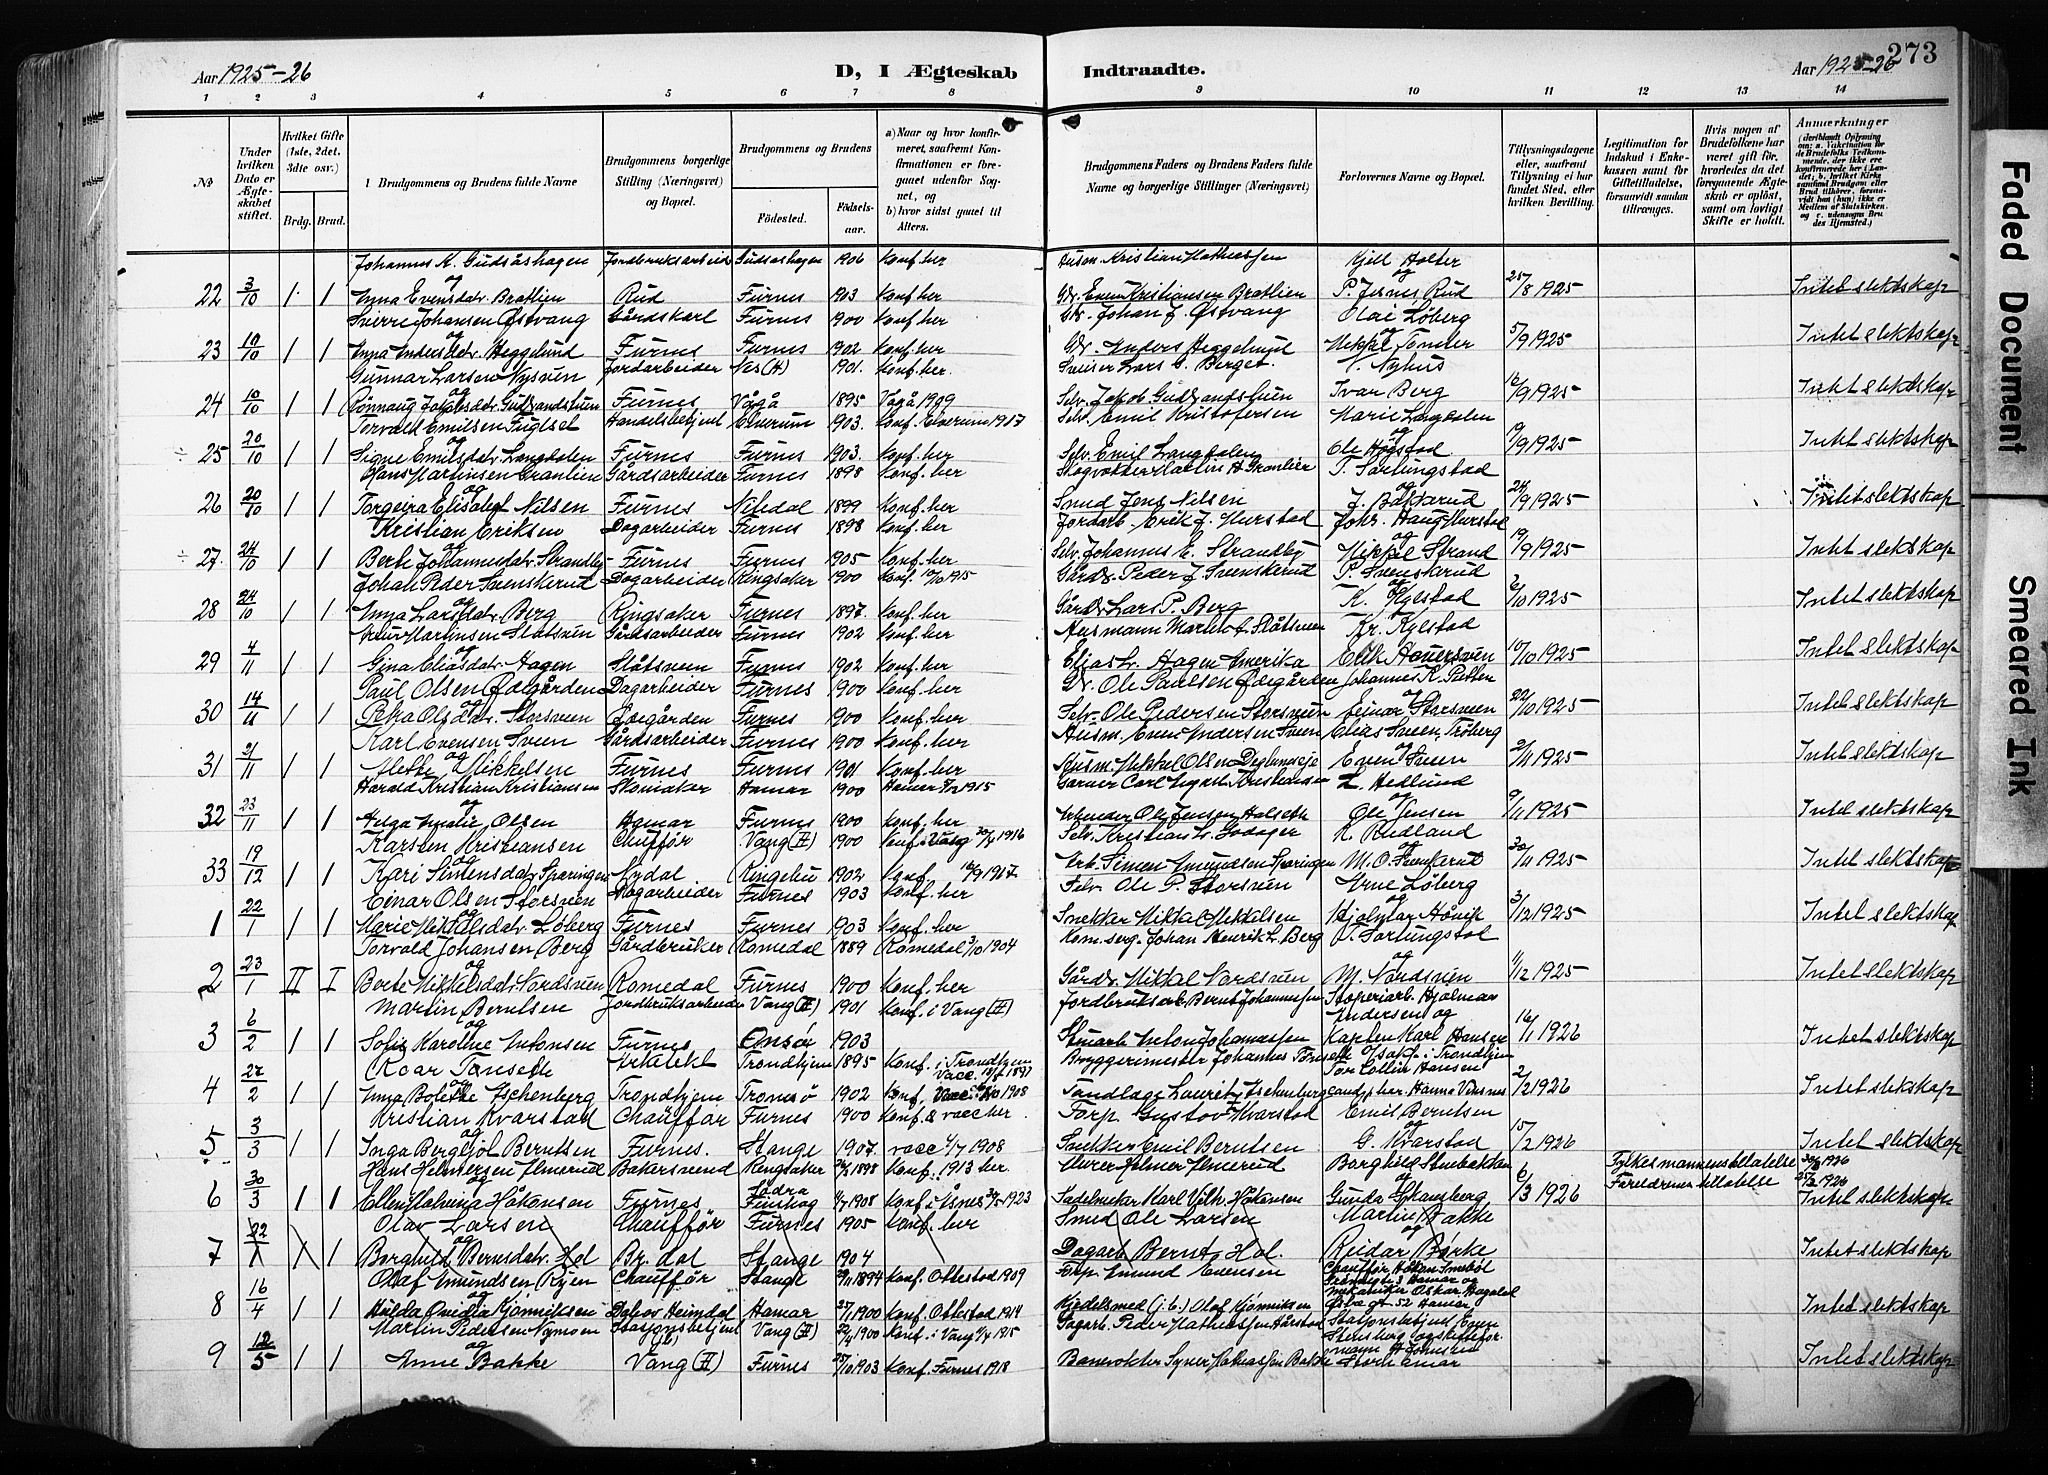 Aar 1925-26
D, I Ægteskab
Indtraadte.
Aar 1925-26 273
1 2 3 4 5 6 7 8 9 10 11 12 13 14
№
Under hvilken Dato er Ægteskabet stiftet.
Hvilket Gifte (1ste, 2det, 3dte osv.)
Brdg. Brud.
Brudgommens og Brudens fulde Navne
Brudgommens borgerlige Stilling (Næringsvei) og Bopæl.
Brudgommens og Brudens
Födested.
Födselsaar.
a) Naar og hvor konfirmeret, saafremt Konfirmationen er foregaaet udenfor Sognet, og
b) hvor sidst gaaet til Alters.
Brudgommens Faders og Brudens Faders fulde Navne og borgerlige Stillinger (Næringsvei)
Forlovernes Navne og Bopæl.
Tillysningsdagene eller, saafremt Tillysning ei har fundet Sted, efter hvilken Bevilling.
Legitimation for Indskud i Enkekassen samt for Giftetilladelse, forsaavidt saadan tiltrænges.
Hvis nogen af Brudefolkene har været gift för, hvorledes da det foregaaende Ægteskab er oplöst, samt om lovligt Skifte er holdt.
Anmærkninger
Johannes K. Gudsåshagen Jordbruksarbeid Gudsåshagen 1906 Konf. her Husm. Kristian Mathiassen Kjell Holter
og
22 3/10 1 1 Anna Evensdatr. Bratlien Rud Furnes 1903 Konf. her Gbr. Even Kristiansen Bratlien P. Jernes Rud 25/8 1925 Intet slektskap
Sverre Johansen Østvang Gårdskarl Furnes 1900 Konf. her Gbr. Johan J. Østvang Olai Løberg
23 10/10 1 1 Anna Andersdatr. Heggelund Furnes Furnes 1902 Konf. her Gbr. Anders Heggelund Mikkel Tomter 5/9 1925 Intet slektskap
Gunnar Larsen Nysven Jordarbeider Nes (H) 1901. Konf. her. Sveiser Lars G. Berget. N. Nyhus
24 10/10 1 1 Rønnaug Jakobsdatr. Gudbrandshuen Furnes Vågå 1895 Vågå 1909 Selv. Jakob Gudbrandshuen Ivar Berg 12/9 1925 Intet slektskap
Torvald Emilsen Fuglset Handelsbetjent Elverum 1903. Konf. Elverum 1917 Selv. Emil Kristofersen Marie Langdalen
25 20/10 1 1 Signe Emilsdatr. Langdalen Furnes Furnes 1903. Konf. her Selv. Emil Langdalen Ole Høgstad 19/9 1925 Intet slektskap
Hans Martinsen Granlien Gårdsarbeider Furnes 1898 Konf. her Skogvokter Martin H. Granlien P. Sørlungstad
26 20/10 1 1 Torgeira Elisabet Nilsen Furnes Nitedal 1899 Konf. her Smed Jens Nilsen J. Bakkerud 24/9 1925 Intet slektskap
Kristian Eriksen Dagarbeider Furnes 1898 Konf. her Jordarb. Erik J. Hurstad Johs. Haug Hurstad
27. 24/10 1 1 Berte Johannesdatr. Strandby Furnes Furnes 1905 Konf. her Selv. Johannes E. Strandby Mikkel Strand 19/9 1925 Intet slektskap
Johan Peder Svenskerud Dagarbeider Ringsaker 1900 Konf. 10/10 1915 Gårdbr. Peder J. Svenskerud P. Svenskerud
28 24/10 1 1 Anna Larsdatr. Berg Ringsaker Furnes 1897. Konf. her Gårdbr. Lars P. Berg K. Kylstad 2/10 1925 Intet slektskap
Martinsen Slåtsven Gårdsarbeider Furnes 1902 Konf. her Husmann Martin Slåtsveen Kr. Kylstad
29 4/11 1 1 Gina Eliasdatr. Hagen Slåtsven Furnes 1902 Konf. her Elias L. Hagen Amerika Erik Hauersven 10/10 1925 Intet slektskap
Paul Olsen Ødegården Dagarbeider Furnes 1900 Konf. her Gbr. Ole Paulsen Ødegården Johannes K. Pütten
30 14/11 1 1 Petra Olsdatr. Storsveen Ødegården Furnes 1900 Konf. her Selv. Ole Pedersen Storsveen Einar Storsveen 22/10 1925 Intet slektskap
Karl Evensen Sveen Gårdsarbeider Furnes 1900 Konf. her Husm. Even Andersen Sveen Elias Sveen, Trøberg
31 21/11 1 1 Mette Mikkelsen Furnes Furnes 1901 Konf. her Husm. Mikkel Olsen Deglumseje Even Sveen 2/11 1925 Intet slektskap
Harald Kristian Kristiansen Skomaker Hamar 1900 Hamar 1915 Garver Carl Kristiansen L. Hedlund
32 23/11 1 1 Helga Amalie Olsen Hamar Furnes 1900 Konf. her Arbeider Ole Jensen Halseth Ole Jensen 9/11 1925 Intet slektskap
Karsten Kristiansen Chauffør Vang (H) 1900 Konf. i Vang 1916 Selv. Kristian L. Godager K. Rudland
33 19/12 1 1 Kari Simensdatr. Sparingen Nydal Ringebu 1902 Konf. 16/9 1917 Arb. Simen Amundsen Sparingen M. O. 30/11 1925 Intet slektskap
Einar Olsen Storsveen Dagarbeider Furnes 1903 Konf. her Selv. Ole P. Storsveen Arne Løberg
1 22/1 1 1 Marie Mikkelsdatr. Løberg Furnes Furnes 1903 Konf. her Snekker Mikkel Mikkelsen Hjalmar Håvik 3/12 1925 Intet slektskap
Torvald Johansen Berg Gårdbruker Romedal 1889 Romedal 3/10 1904 Kom. serg. Johan Henrik L. Berg P. Sørlungstad
2 23/1 II I Berte Mikkelsdatr. Nordsveen Romedal Furnes 1900 Konf. her Gårdbr. Mikkel Nordsveen M. Nordsveen 11/12 1925 Intet slektskap
Martin Berntsen Jordbruksarbeider Vang (H) 1901 Konf. i Vang (H) Jordbruksarb. Bernt Johannessen Støperiarb. Hjalmar Andersen og
3 6/2 1 1 Sofie Karoline Antonsen Furnes Onsø 1903 Stuearb. Anton Johannessen Kaptein Karl Hansen 16/1 1926 Intet slektskap
Roar Tønseth Arkitekt Trondhjem 1895 Konf. i Trondhjem Bryggerimester Johannes Tønseth Osakf. i Trondhjem
Tor Collin Hansen
4 27/2 1 1 Anna Bolette Aschenberg Trondhjem Tromsø 1902 Konf. Vacc. 1908 Tandlæge Laurits Aschenberg cand. phar. Hanna Vensnes 2/2 1926 Intet slektskap
Kristian Kvarstad Chauffør Furnes 1900 Konf. & vacc her Forp. Gustav Kvarstad Emil Berntsen
5 3/3 1 1 Inga Bergljot Berntsen Furnes. Stange 1907. vacc 4/7 1908 Snekker Emil Berntsen G. Kvarstad 15/2 1926 Intet slektskap
Hans Helmersen Almerud Bakersvend Ringsaker 24/2 1898 Konf. 1913 her. Murer Helmer Almerud Borghild Stubakken Fylkesmannens tillatelse 1926
6 30/3 1 1 Ellen Malvina Håkonsen Furnes Södra Finskog 1/7 1908 Konf. i Åsnes 30/5 1923 Sadelmaker Karl Vilh. Håkonsen Gunda Skansberg 6/3 1926 Foreldrenes tillatelse 1926 Intet slektskap
Olav Larsen Chauffør Furnes 1905 Konf. her Smed Ole Larsen Martin Bakke
7 22/1 1 1 Borghild Berntsdatr. Hol Br. dal Stange 1904 Dagarb. Bernt Hol. Reidar Børke Intet slektskap
Olaf Amundsen Ryen Chauffør Stange 9/11 1894 Konf. Ottestad 1909 Forp. Amund Evensen Chauffør Håkon Smebøl
Grønnegt. 3 Hamar og
mekaniker Oskar Hagelid
8 16/4 1 1 Hulda Ovidia Kjønniksen Dahos Heimdal Hamar 27/1 1900 Konf. Ottestad 1914 Kjedelsmed (j.b.) Olaf Kjønniksen Østre gt. 52 Hamar Intet slektskap
Martin Pedersen Nymoen Stasjonsbetjent Vang (H) 22/4 1900 Konf. i Vang 1915 Dagarb. Peder Mathiassen Hårstad Stasjonsbetjent Even
Stensberg og
9 12/5 1 1 Anne Bakke Vang (H) Furnes 25/10 1903 Konf. Furnes 1918 Banevokter Syver Mathiassen Bakke Intet slektskap
Faded Document
Smeared Ink